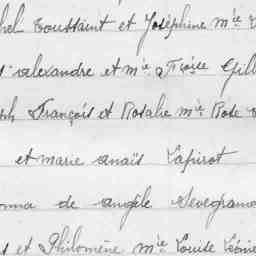 Toussaint et Joséphine mie
Alexandre et mie Fçoise Gill
François et Rosalie mie Rose
et marie anaïs Lapirot
de angèle Sevegrand
et Philomène mie Louise Léonie